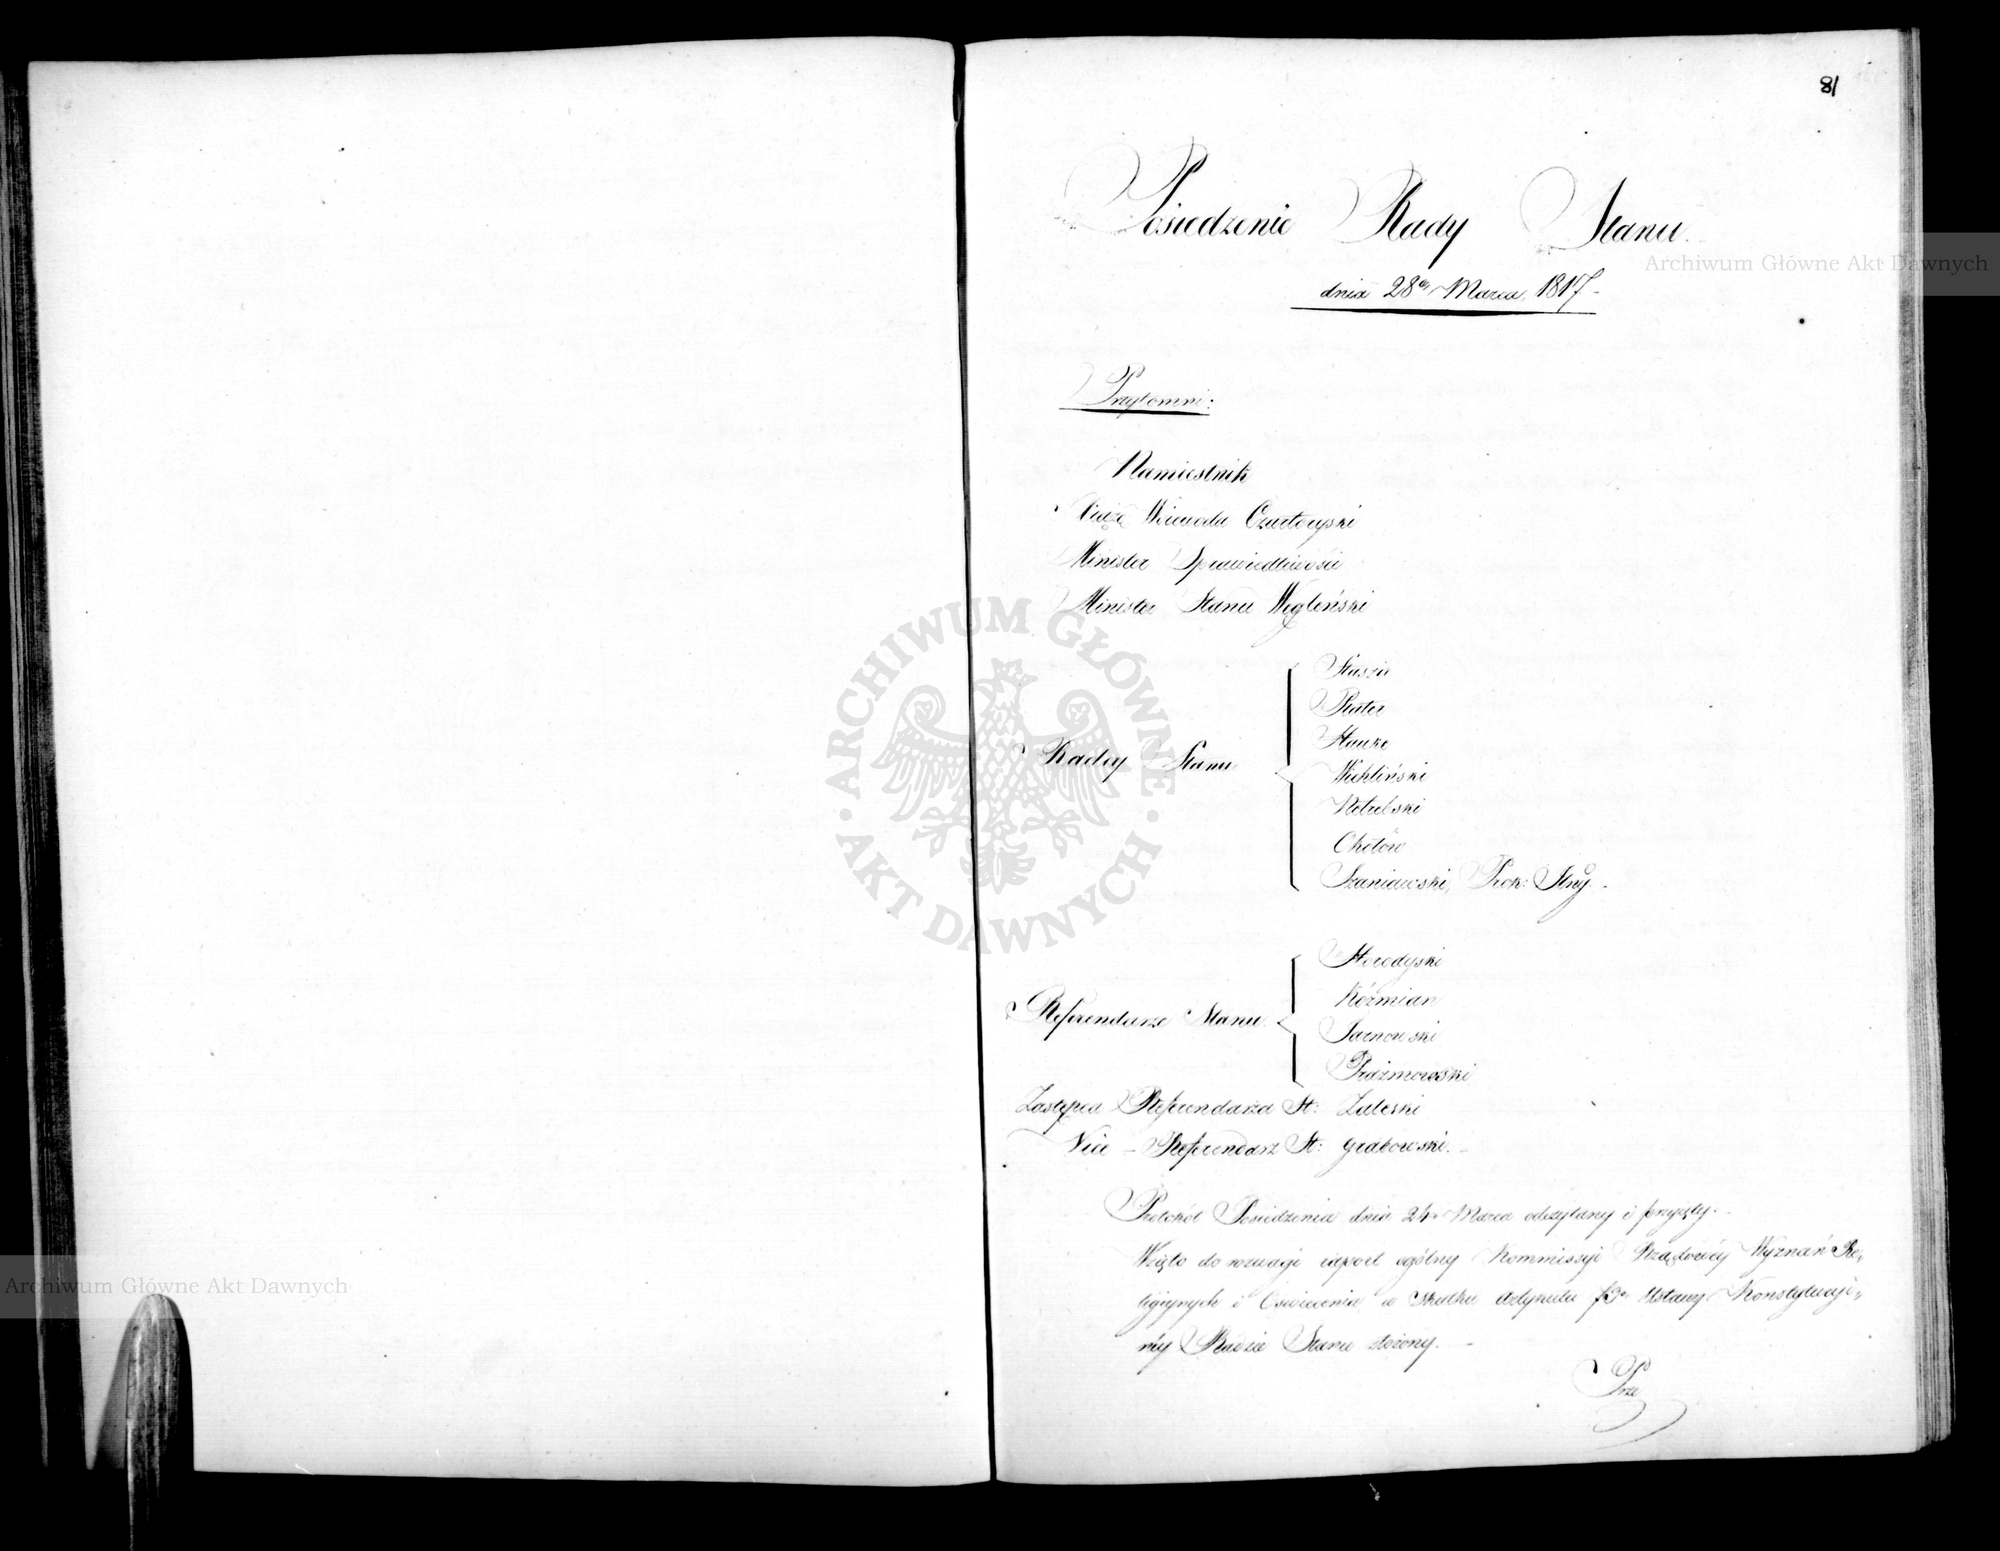 81
Posiedzenie Rady Stanu.
dnia 28go Marca, 1817.-
Przytomni:
Namiestnik
Xiąże Wojewoda Czartoryski
Minister Sprawiedliwości
Minister Stanu Węgleński
Radcy Stanu
Staszic
Plater
Hauke
Wichliński
Nakwaski
Okołów
Szaniawski, Prok: Jlny.-
Referendarze Stanu.
Horodyski
Koźmian
Sarnowski
Prażmowski
Zastępca Referendarza St: Zaleski
Vice - Referendarz St: Grabowski.-
Protokół Posiedzenia dnia 24. Marca odczytany i przyięty.-
Wzięto do rozwagi raport ogólny Kommissyi Rządowéy Wyznań Re-
ligiynych i Oświecenia, w skutku artykułu 73o Ustawy Konstytucyi-
néy Radzie Stanu złożony.-
Prze
Archiwum Główne Akt Dawnych
Archiwum Główne Akt Dawnych
ARCHIWUM GŁÓWNE
AKT DAWNYCH